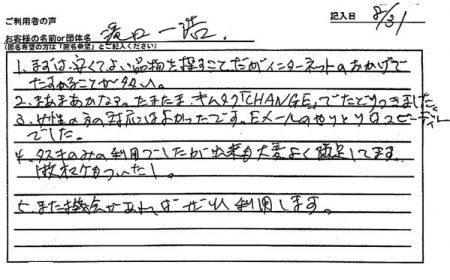 ご利用者の声
記入日 8/31
お客様の名前or団体名 滝口 一浩
(匿名希望の方は「匿名希望」とご記入ください)
1、まずは、安くてよい品物を探すことだがインターネットのおかげで
たすかることが多い。
2、まあまあかな?。たまたま、キムタク「CHANGE」でたどりつきました。
3、女性の方の対応はよかったです。Eメールのやりとりもスピーディー
でした。
4、タスキのみの利用でしたが出来も大変よく満足してます。
5、また機会があれば ぜひ利用します。